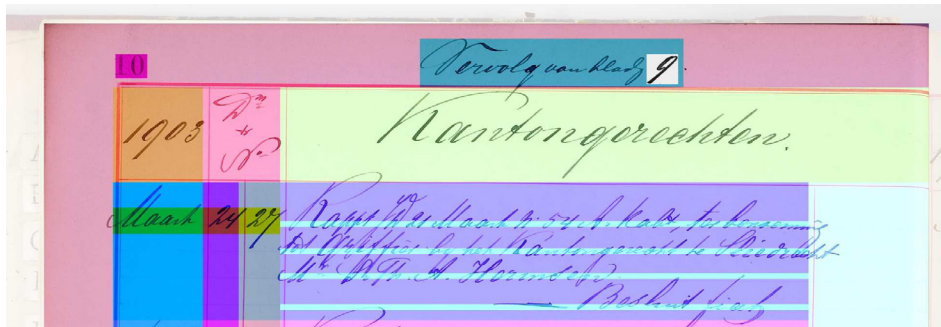 10
Vervolg van bladz 9.
1903
Kantongerechten.
Maart 24 27 Rapp. Wd 21 Maart n. 54 A. Kab, ter benoeming
tot Griffier by het Kantongerecht te Sliedrecht
Mr A. Hermsen
Besluit fiat